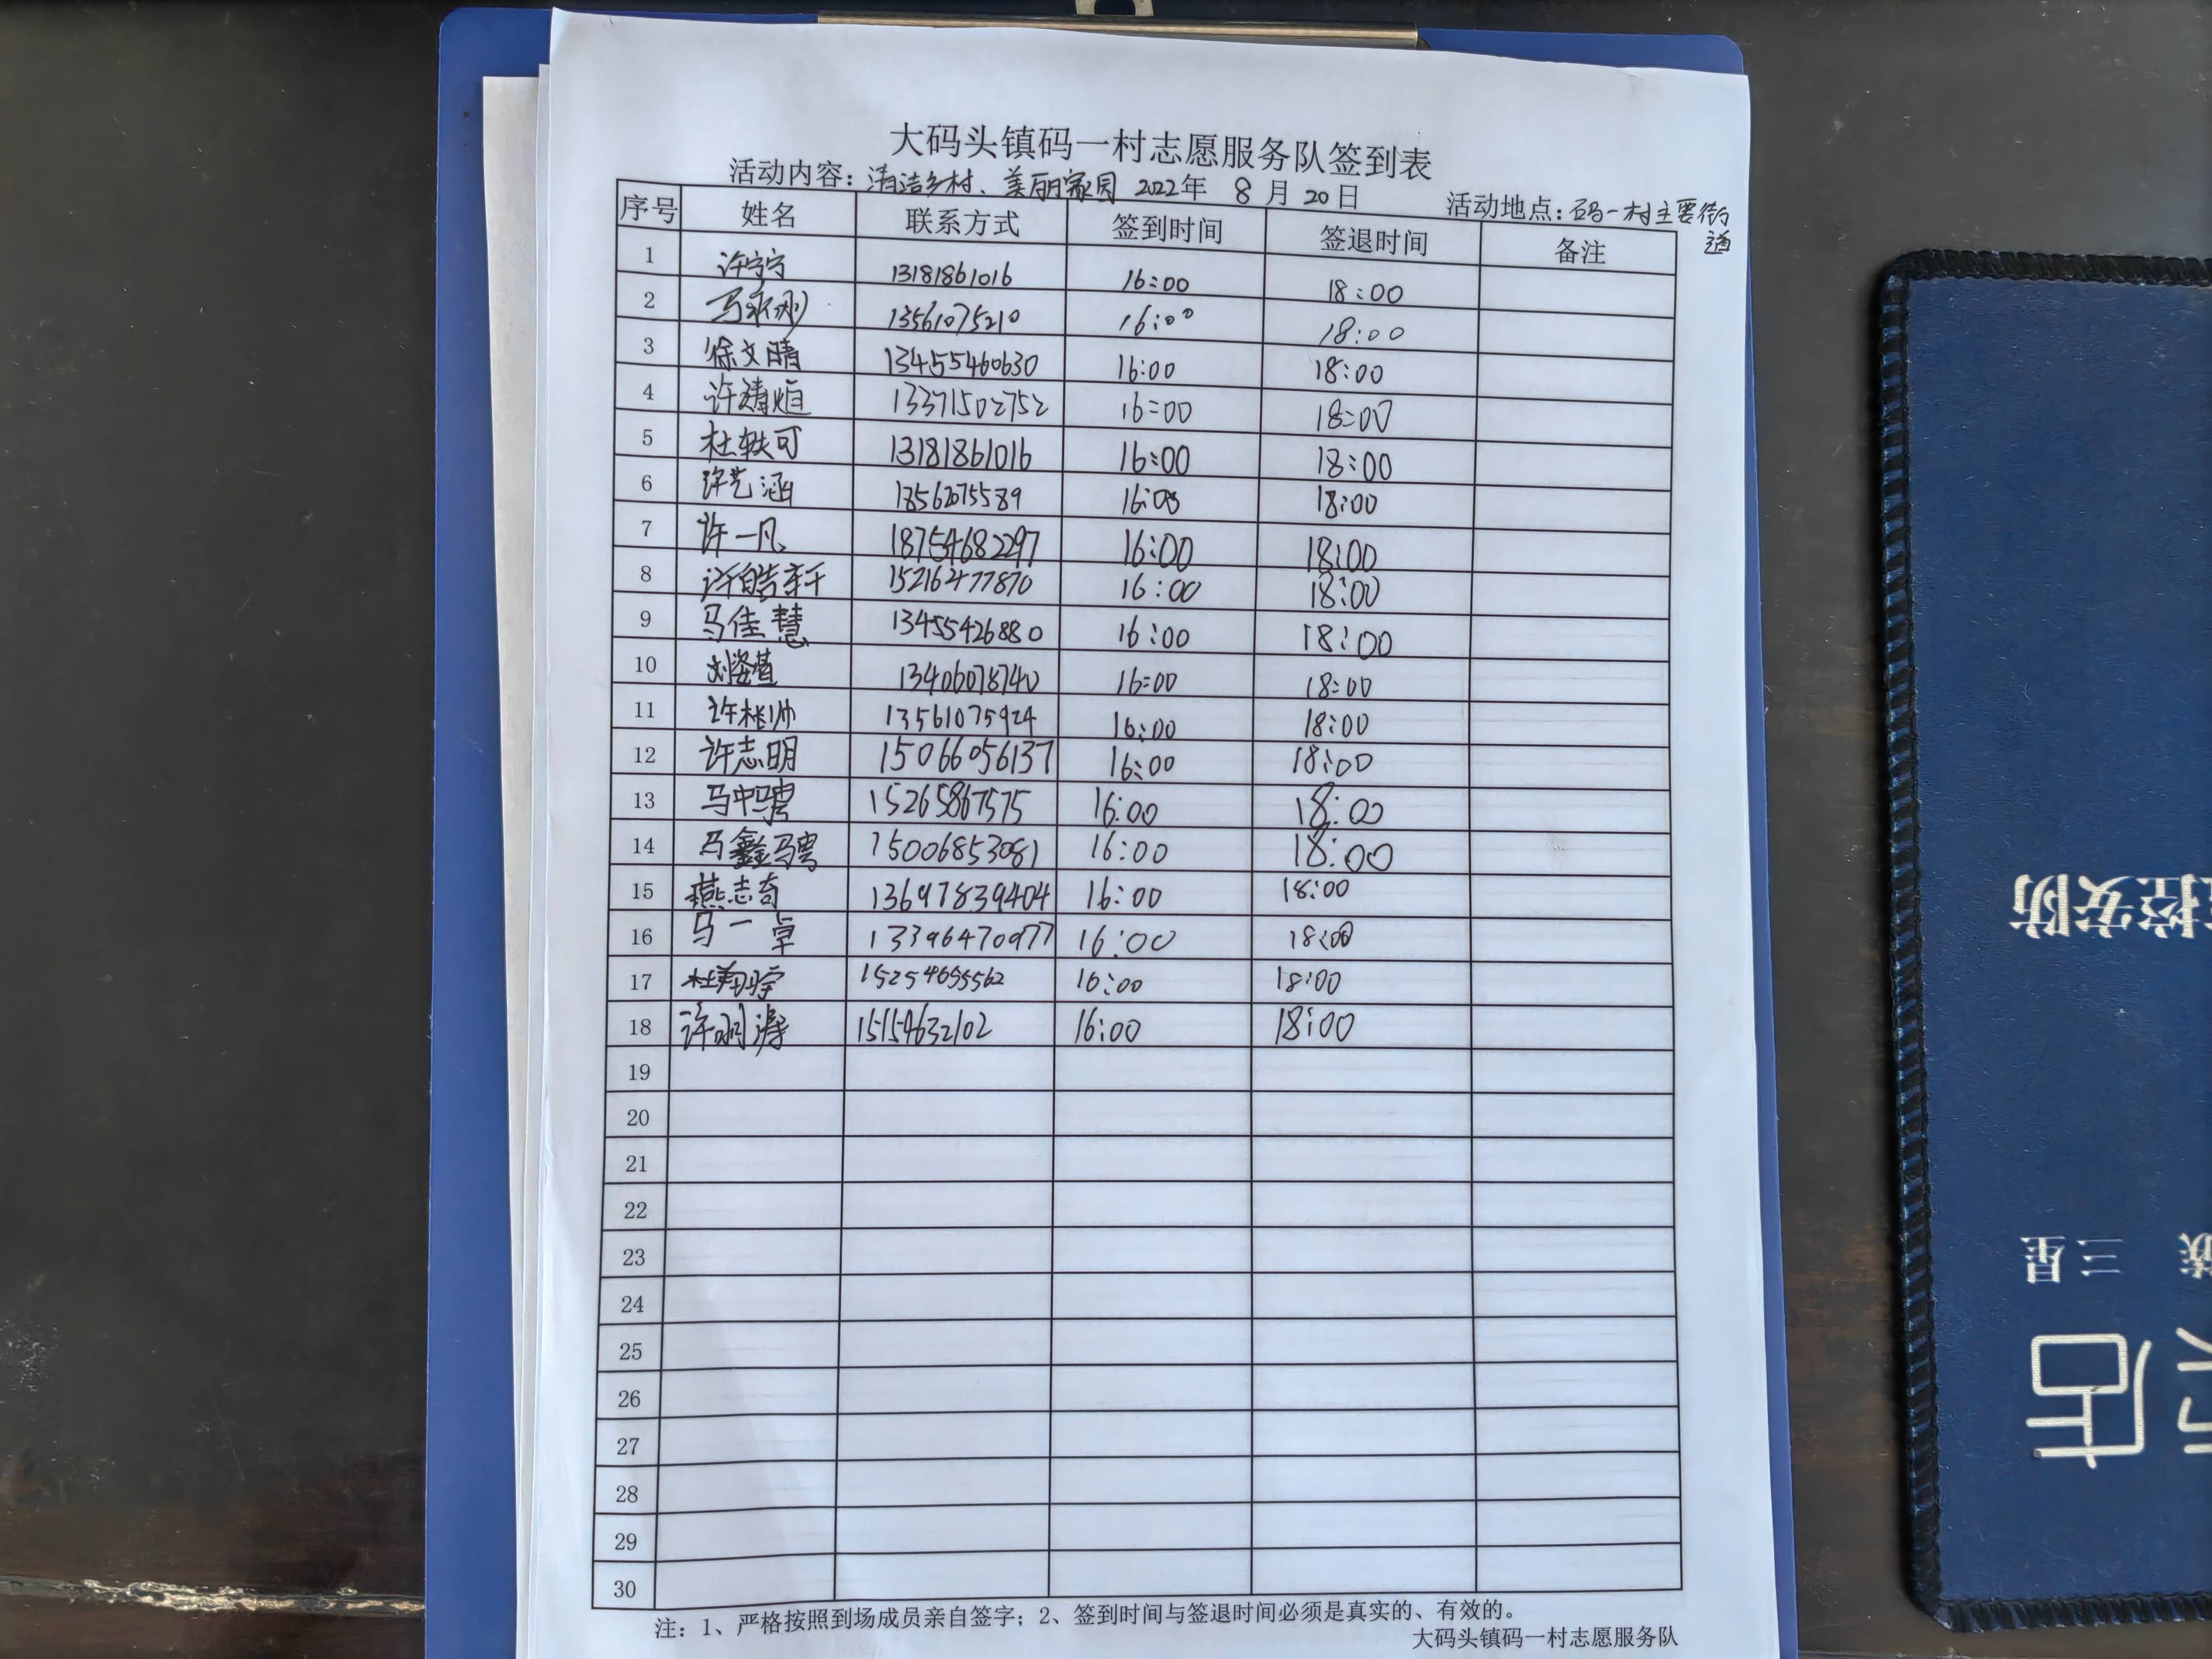 大码头镇码一村志愿服务队签到表
活动内容：清洁乡村、美丽家园 2022年 8月20日 活动地点：码一村主要街道
序号 姓名 联系方式 签到时间 签退时间 备注
1 许宁宁 13181861016 16:00 18:00
2 马永刚 13561075210 16:00 18:00
3 徐文晴 13455460630 16:00 18:00
4 许靖烜 13371502752 16:00 18:00
5 杜轶可 13181861016 16:00 18:00
6 许艺涵 16:00 18:00
7 许一凡 18754682297 16:00 18:00
8 许皓轩 15216477870 16:00 18:00
9 马佳慧 13455426880 16:00 18:00
10 13406078740 16:00 18:00
11 许彬帅 13561075924 16:00 18:00
12 许志明 15066056137 16:00 18:00
13 马中骋 15265867575 16:00 18:00
14 马鑫骋 15006853081 16:00 18:00
15 燕志奇 13697839404 16:00 18:00
16 马一卓 13396470977 16:00 18:00
17 杜翔宇 15254655562 16:00 18:00
18 许明涛 15154632102 16:00 18:00
19
20
21
22
23
24
25
26
27
28
29
30
注：1、严格按照到场成员亲自签字；2、签到时间与签退时间必须是真实的、有效的。
大码头镇码一村志愿服务队
控安防
三星
店